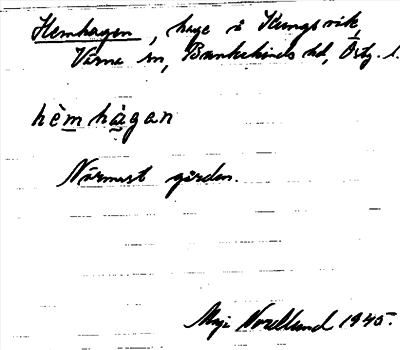 Hemhagen, hage å Kungsvik,
Värna sn, Bankekinds hd, Östg. l.
hèmhàgan
Närmast gården.
Maj Norellund 1945.